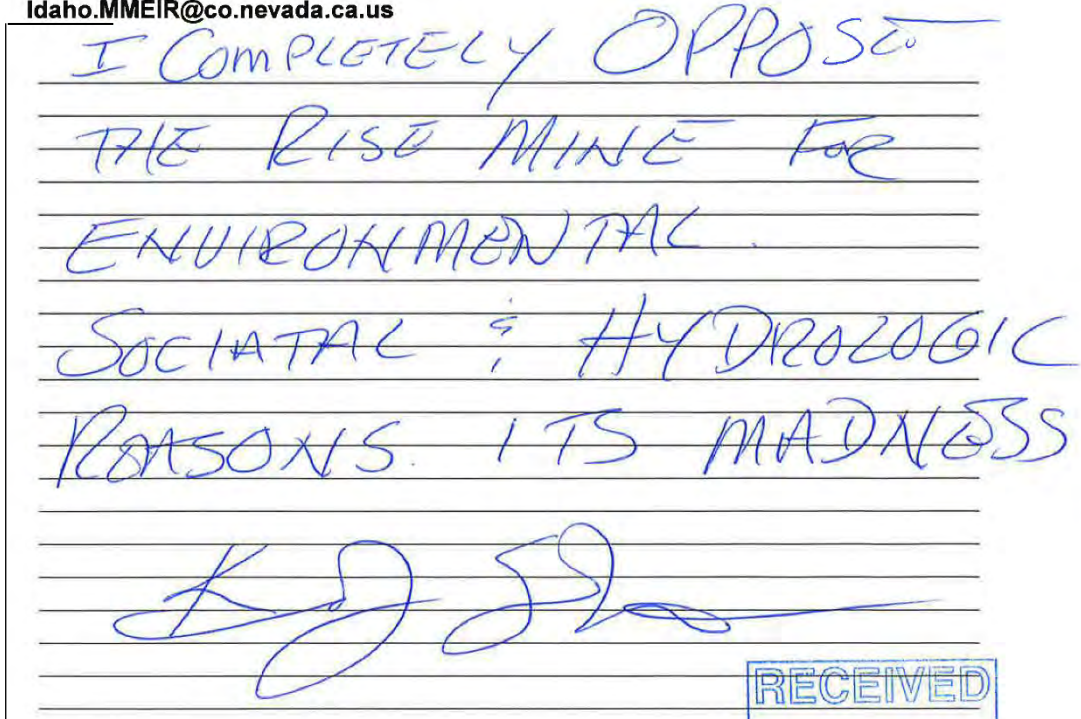 Idaho.MMEIR@co.nevada.ca.us
I COMPLETELY OPPOSE
THE RISE MINE FOR
ENVIRONMENTAL.
SOCIATAL & HYDROLOGIC
REASONS. ITS MADNESS
RECEIVED